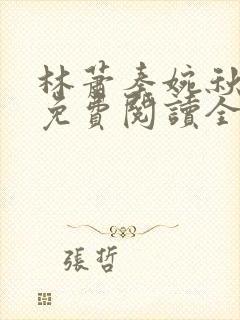 林蕭秦婉秋
免費閱讀全
張哲